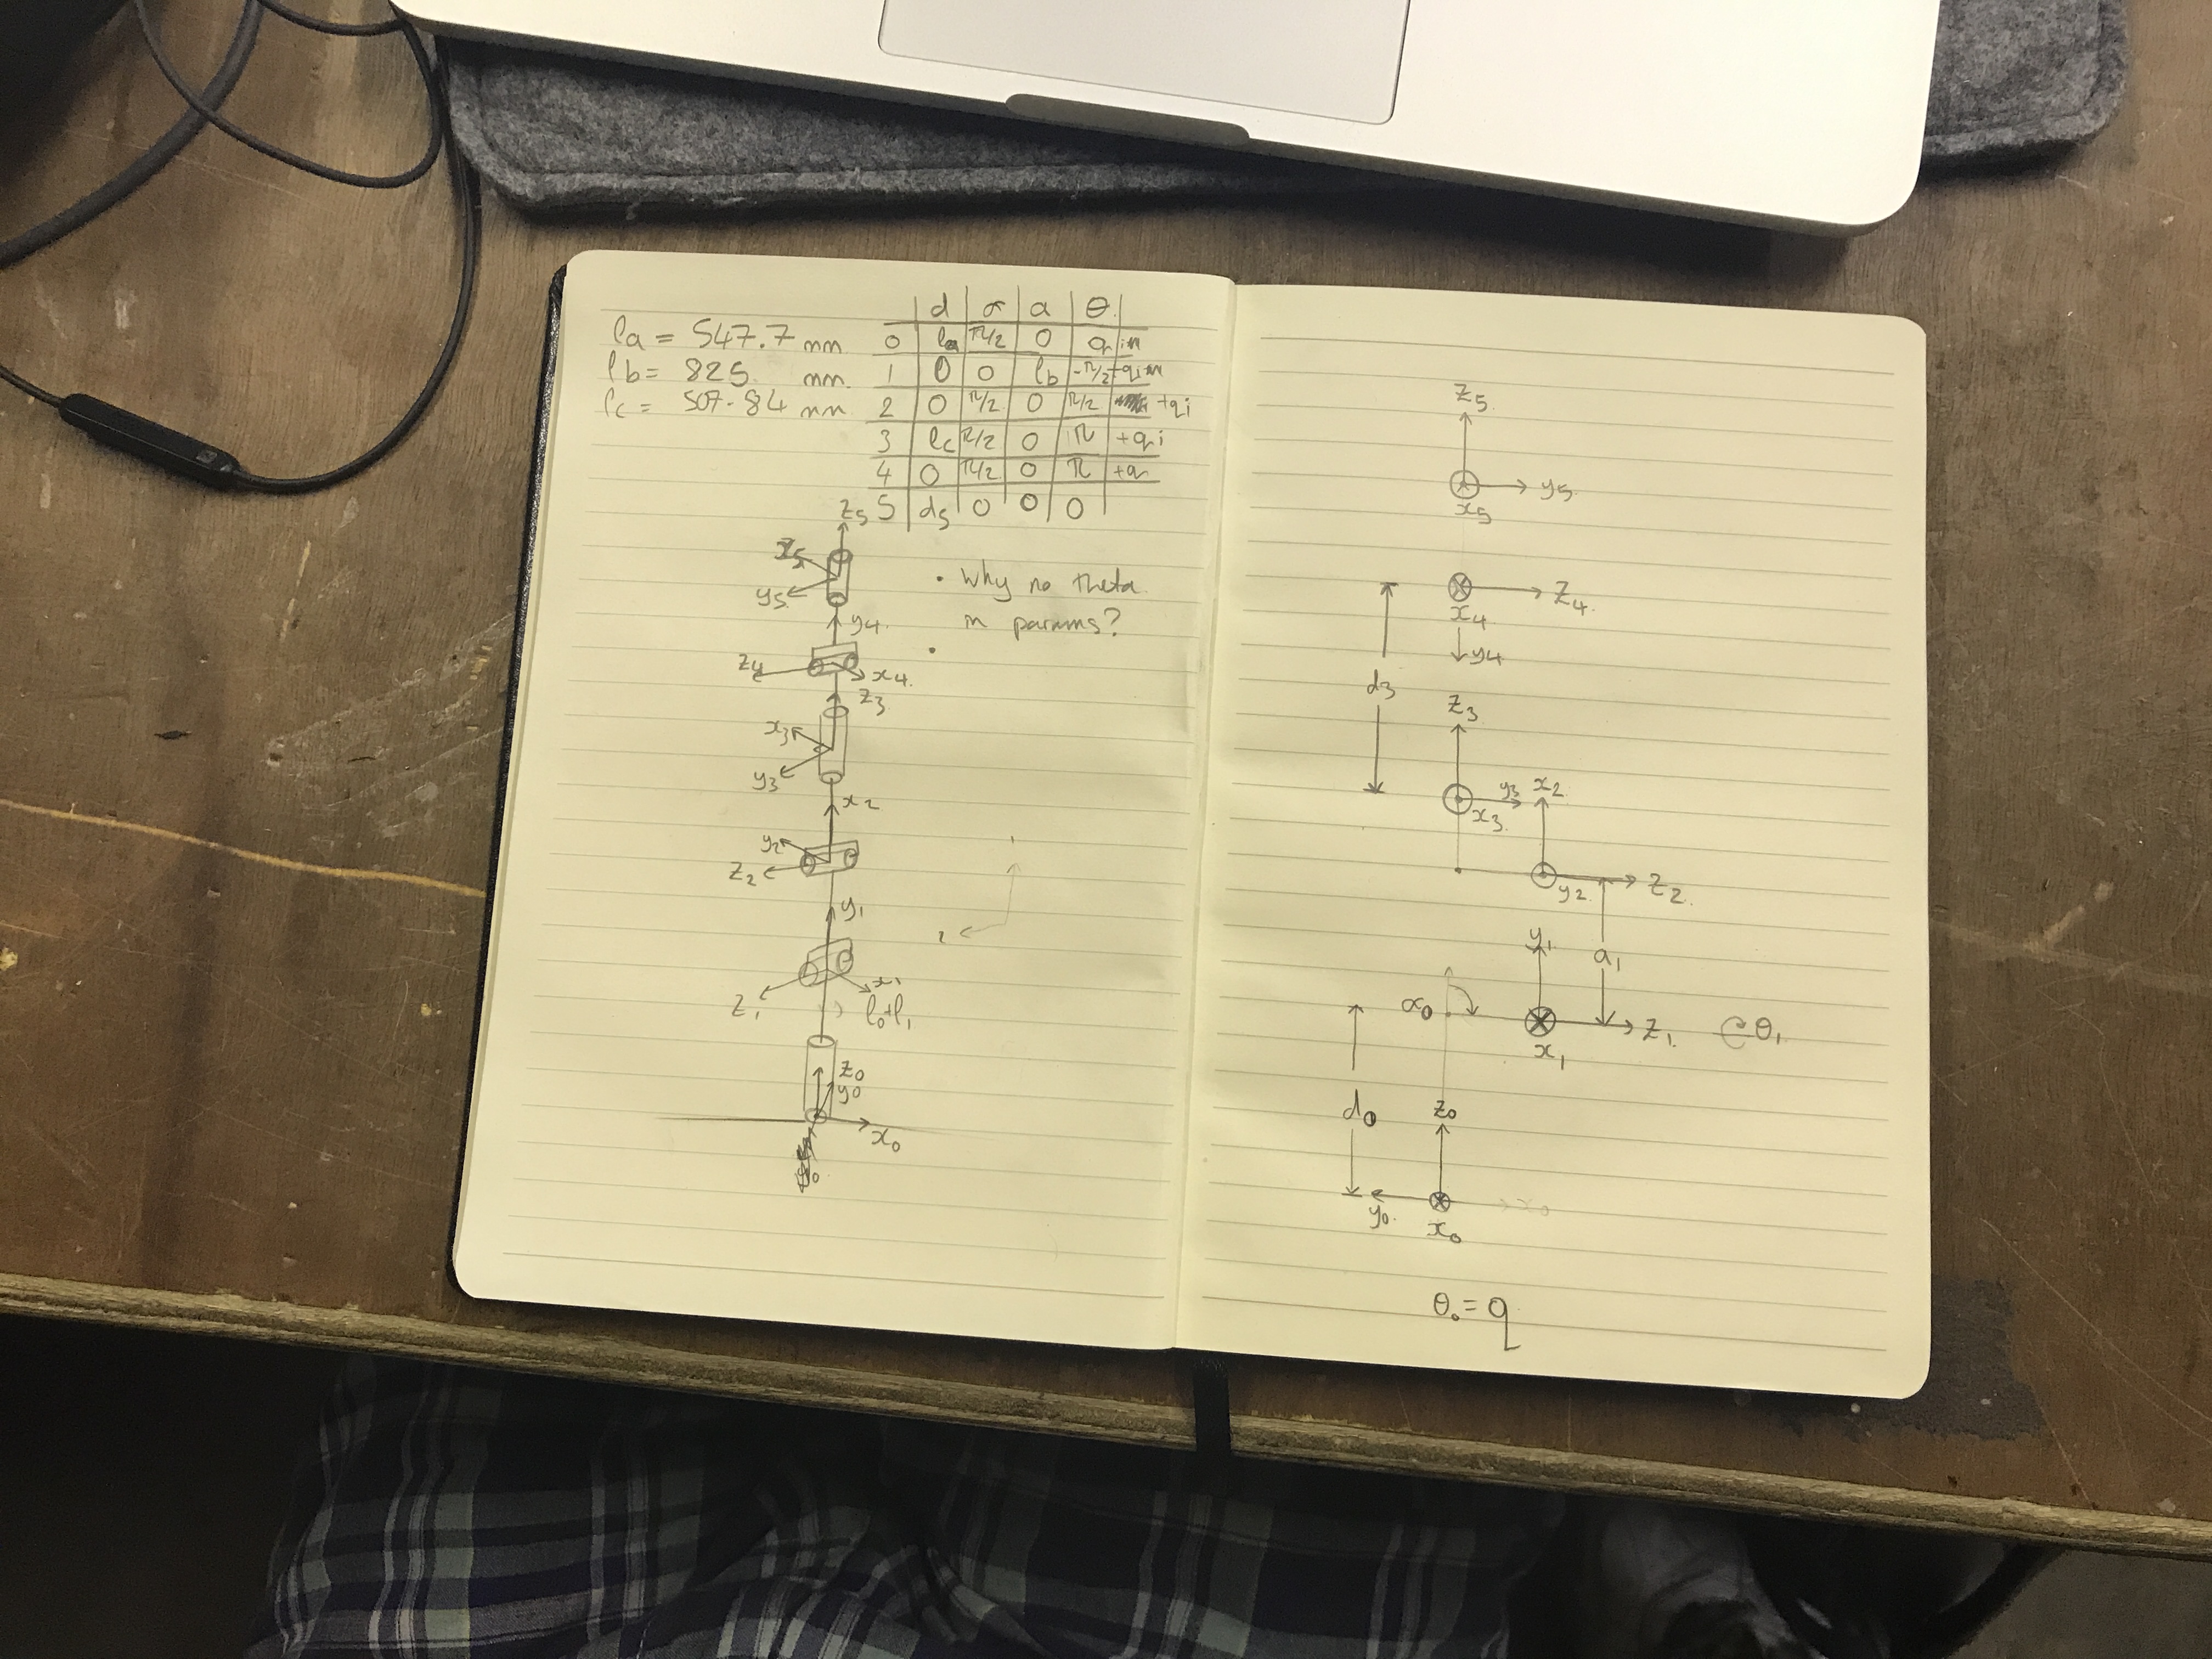 la = 547.7 mm
lb = 825 mm
lc = 507.84 mm
d σ a θ
0 la π/2 0 qin
1 0 0 lb -π/2+qin
2 0 π/2 0 π/2 +qi
3 lc π/2 0 π +qi
4 0 π/2 0 π +qi
5 d5 0 0 0
• Why no theta
in params?
•
z5
x5
y5
y4
z4
x4
z3
x3
y3
x2
y2
z2
y1
z1
x1
l0+l1
z0
y0
x0
y0
z5
x5
y5
d3
x4
z4
y4
z3
x3
y3
x2
y2
z2
a1
y1
x1
z1
θ1
α0
d0
z0
y0
x0
θ0 = q